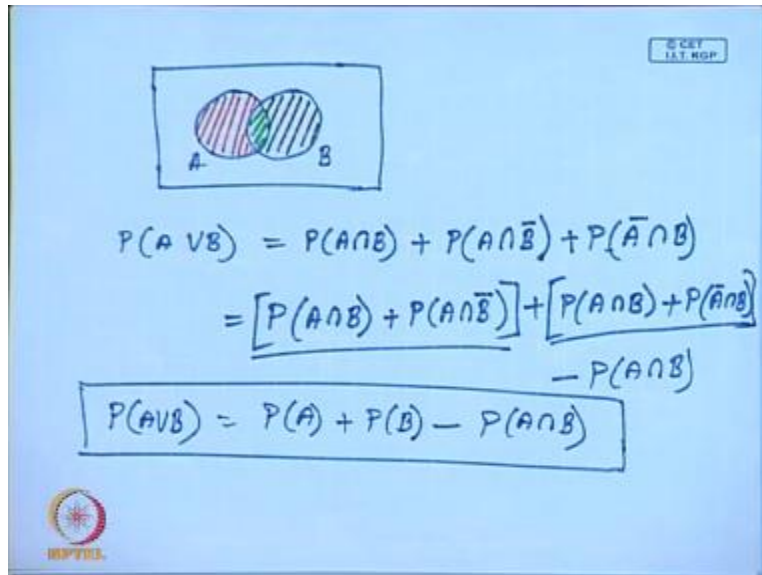 © CET
I.I.T. KGP
A B
P(A ∨ B) = P(A∩B) + P(A∩B̅) + P(A̅∩B)
= [P(A∩B) + P(A∩B̅)] + [P(A∩B) + P(A̅∩B)]
− P(A∩B)
P(A∨B) = P(A) + P(B) − P(A∩B)
NPTEL